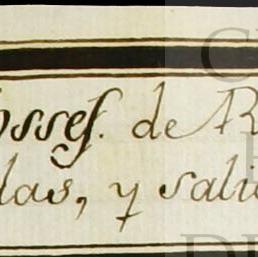 ossef. de R
das, y salie